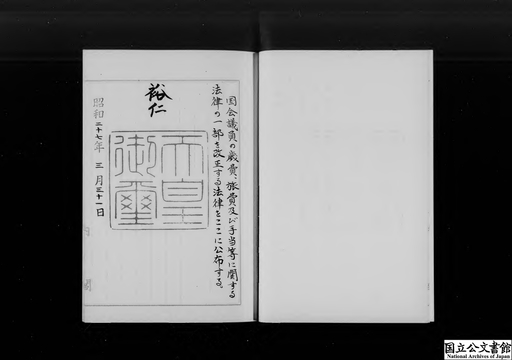 国会議員の歳費、旅費及び手当等に関する
法律の一部を改正する法律をここに公布する。
裕仁
天皇
御璽
昭和二十七年三月三十一日
国立公文書館
National Archives of Japan